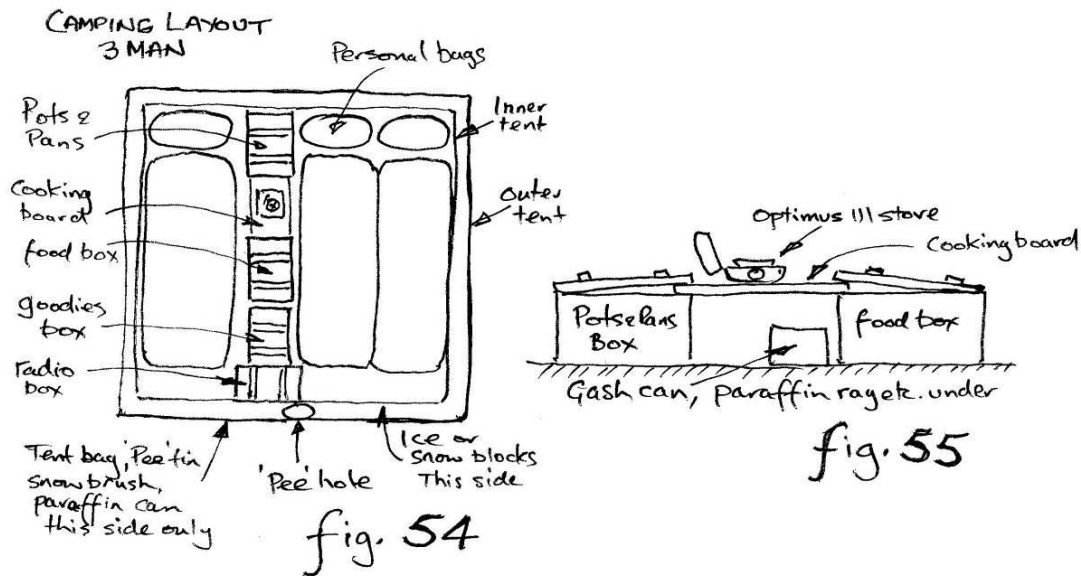 CAMPING LAYOUT
3 MAN
Personal bags
Pots &
Pans
Inner
tent
Cooking
board
Outer
tent
food box
goodies
box
radio
box
Tent bag, 'Pee' tin
snow brush,
paraffin can
this side only
'Pee' hole
Ice or
snow blocks
This side
fig. 54
Optimus 111 stove
Cooking board
Pots & Pans
Box
food box
Gash can, paraffin rag etc. under
fig. 55